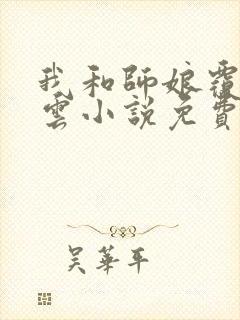 我和師娘覆
雲小說免費
吳華平